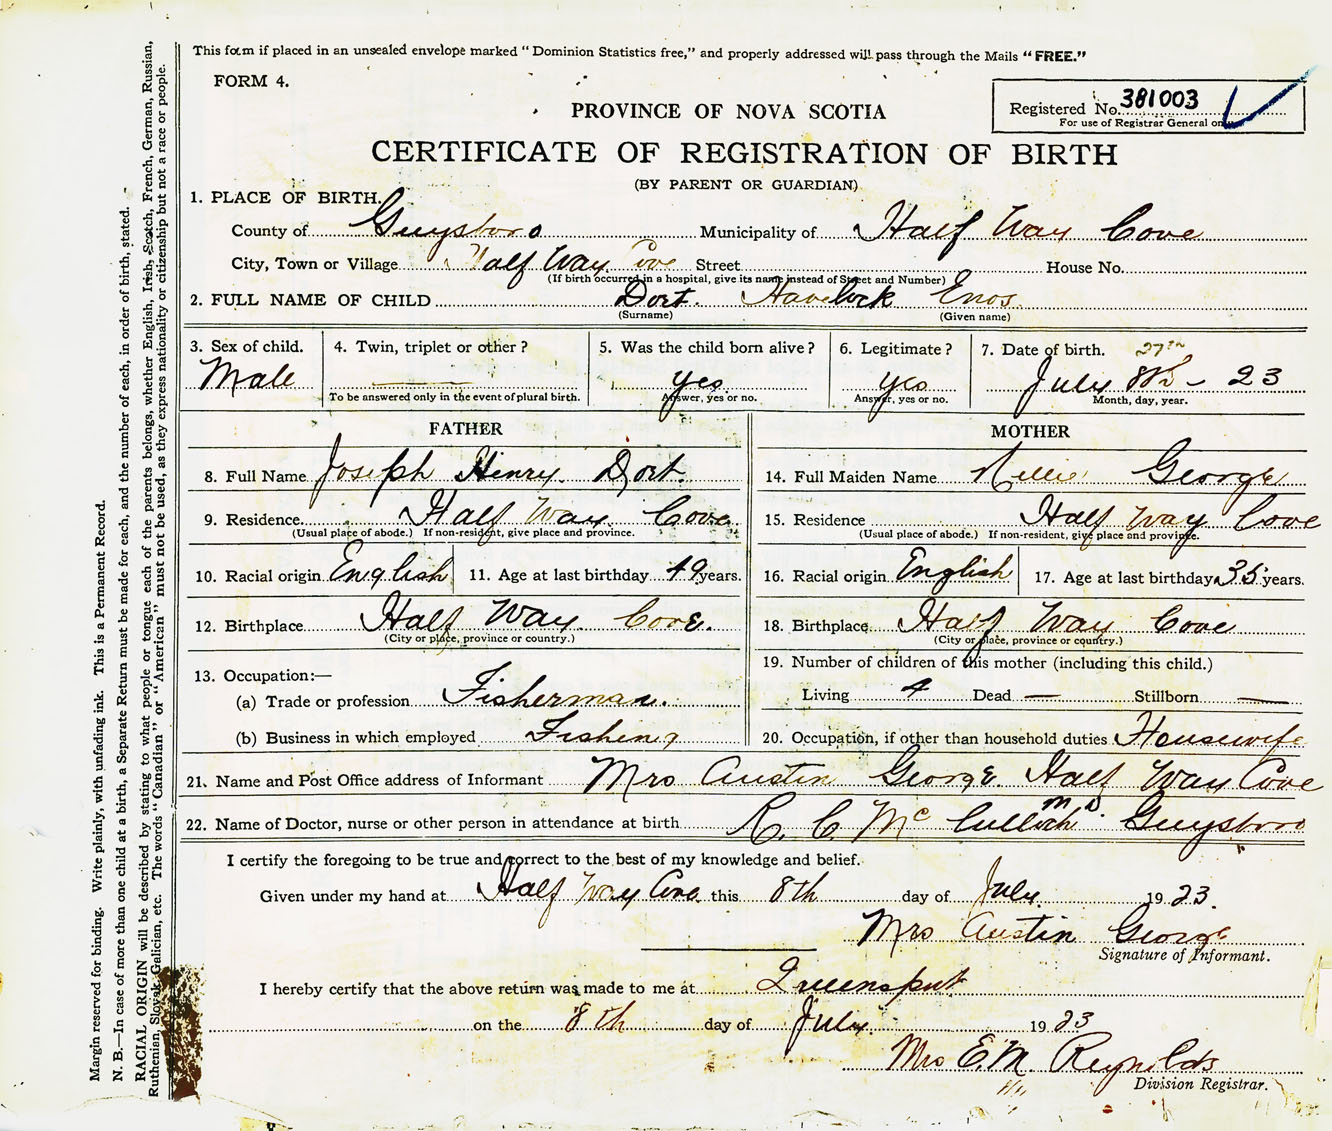 This form if placed in an unsealed envelope marked "Dominion Statistics free," and properly addressed will pass through the Mails "FREE."
FORM 4.
Registered No. 381003
For use of Registrar General only
PROVINCE OF NOVA SCOTIA
CERTIFICATE OF REGISTRATION OF BIRTH
(BY PARENT OR GUARDIAN)
1. PLACE OF BIRTH.
County of Guysboro Municipality of Half Way Cove
City, Town or Village Half Way Cove Street House No.
(If birth occurred in a hospital, give its name instead of Street and Number)
2. FULL NAME OF CHILD Dort. Havelock Enos
(Surname) (Given name)
3. Sex of child. 4. Twin, triplet or other? 5. Was the child born alive? 6. Legitimate? 7. Date of birth. 27th
Male — yes yes July 8th - 23
To be answered only in the event of plural birth. Answer, yes or no. Answer, yes or no. Month, day, year.
FATHER
8. Full Name Joseph Henry Dort.
9. Residence Half Way Cove
(Usual place of abode.) If non-resident, give place and province.
10. Racial origin English 11. Age at last birthday 49 years.
12. Birthplace Half Way Cove.
(City or place, province or country.)
13. Occupation:—
(a) Trade or profession Fisherman.
(b) Business in which employed Fishing
MOTHER
14. Full Maiden Name Nellie George
15. Residence Half Way Cove
(Usual place of abode.) If non-resident, give place and province.
16. Racial origin English 17. Age at last birthday 35 years.
18. Birthplace Half Way Cove
(City or place, province or country.)
19. Number of children of this mother (including this child.)
Living 4 Dead — Stillborn —
20. Occupation, if other than household duties Housewife
21. Name and Post Office address of Informant Mrs Austin George Half Way Cove
22. Name of Doctor, nurse or other person in attendance at birth R. C. McCulloch M.D. Guysboro
I certify the foregoing to be true and correct to the best of my knowledge and belief.
Given under my hand at Half Way Cove this 8th day of July 1923.
Mrs Austin George
Signature of Informant.
I hereby certify that the above return was made to me at Queensport
on the 8th day of July 1923
Mrs E. M. Reynolds
Division Registrar.
Margin reserved for binding. Write plainly, with unfading ink. This is a Permanent Record.
N. B.—In case of more than one child at a birth, a Separate Return must be made for each, and the number of each, in order of birth, stated.
RACIAL ORIGIN will be described by stating to what people or tongue each of the parents belongs, whether English, Irish, Scotch, French, German, Russian,
Ruthenian, Slovak, Galician, etc. The words "Canadian" or "American" must not be used, as they express nationality or citizenship but not a race or people.